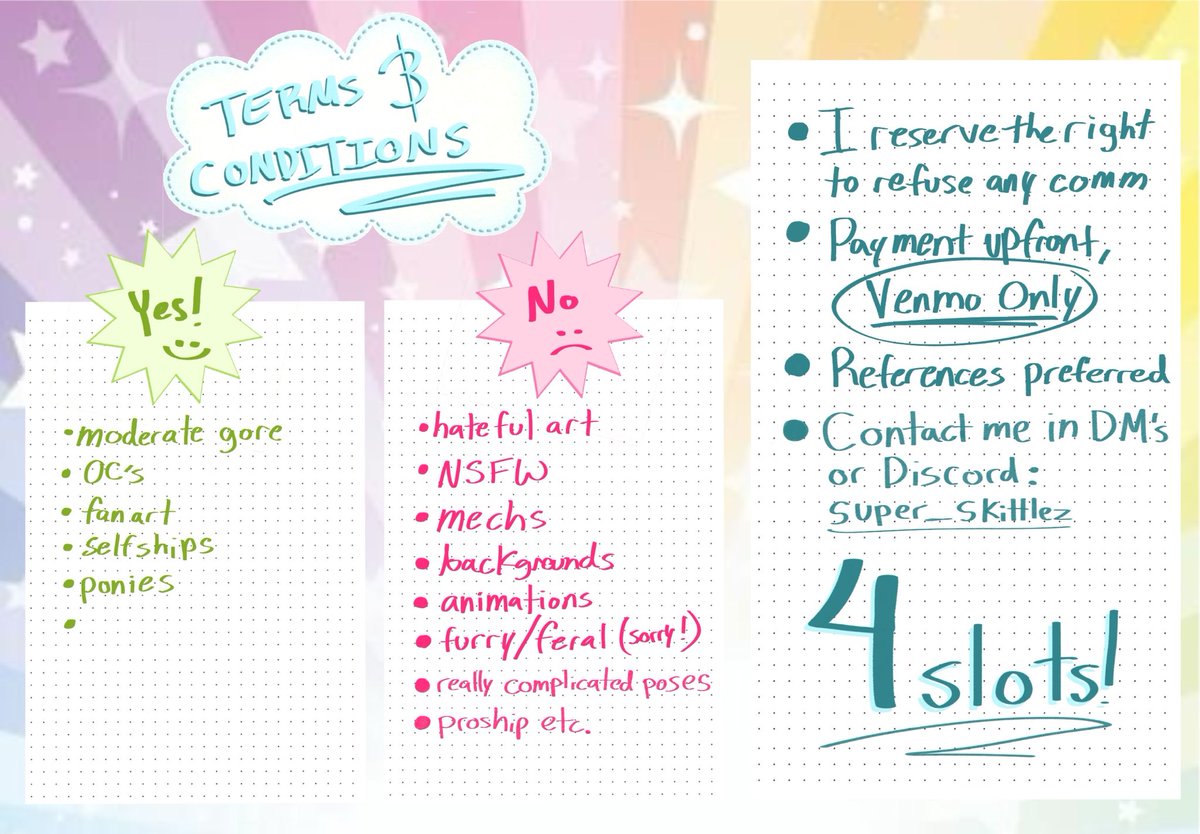 TERMS &
CONDITIONS
Yes!
• moderate gore
• OC's
• fanart
• selfships
• ponies
•
No
• hateful art
• NSFW
• mechs
• backgrounds
• animations
• furry/feral (sorry!)
• really complicated poses
• proship etc.
• I reserve the right
to refuse any comm
• Payment upfront,
Venmo Only
• References preferred
• Contact me in DM's
or Discord:
super_skittlez
4 slots!